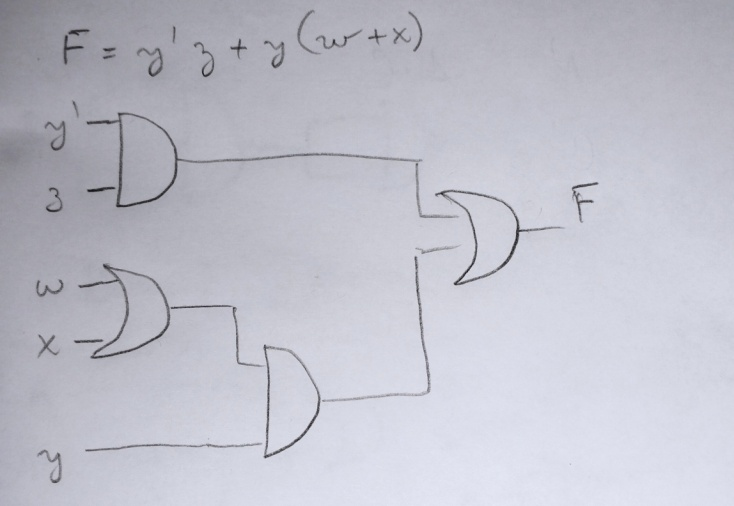 F = y' z + y (w + x)
y'
z
F
w
x
y